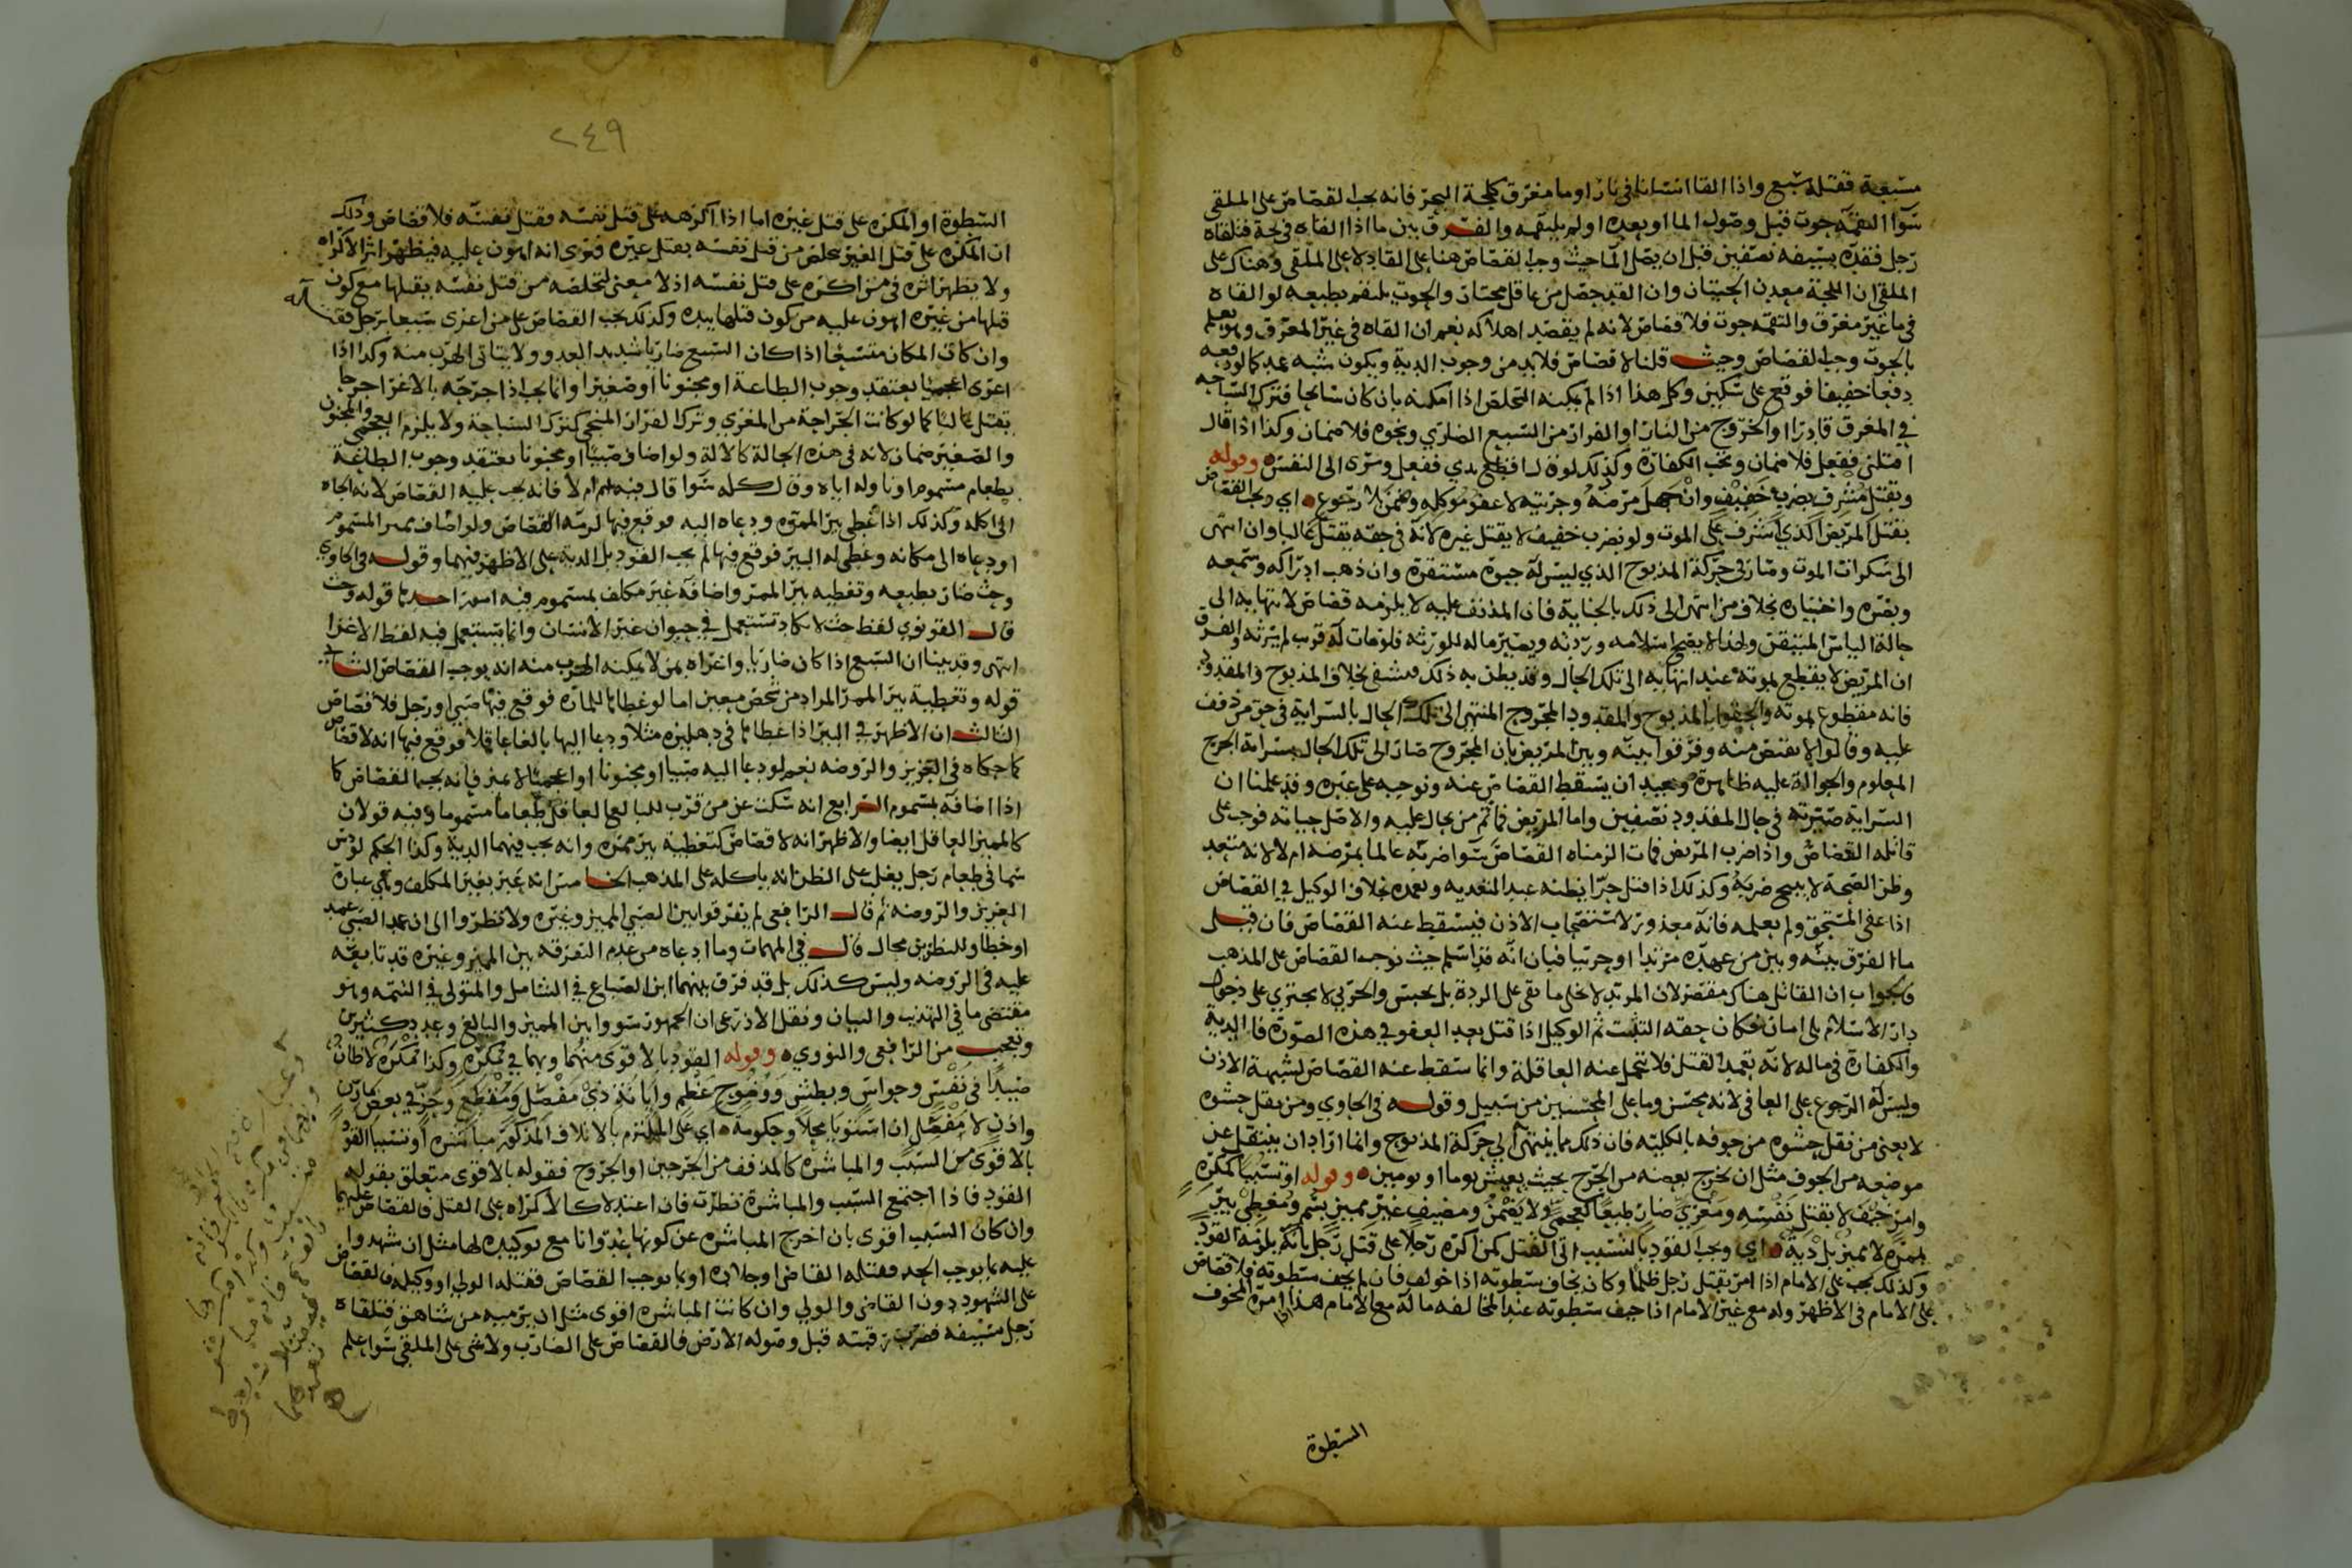 مسبعة فقتله سبع واذا القا انسانا في نار او ما مغرق كلجة البحر فانه يجب القصاص على الملقي
سوا التقمه حوت قبل وصول الما او بعده او لم يلتقمه والفرق بين ما اذا القاه في لجة فتلقاه
رجل فقده بسيفه نصفين قبل ان يصل الما حيث وجب القصاص هنا على القاد لا على الملقي وهناك على
الملقي ان اللجة معدن الحيتان وان القد حصل من عاقل مختار والحوت يلتقم بطبعه لو القاه
في ما غير مغرق والتقمه حوت فلا قصاص لانه لم يقصد اهلاكه نعم ان القاه في غير المغرق وهو يعلم
بالحوت وجب القصاص وحيث قلنا لا قصاص فلا بد من وجوب الدية ويكون شبه عمد كما لو دفعه
دفعا خفيفا فوقع على سكين وكل هذا اذا لم يمكنه التخلص اذا امكنه بان كان سابحا فترك السباحه
في المغرق قادرا او الخروج من النار او الفرار من السبع الضاري ونحوه فلا ضمان وكذا اذا قال
اقتلني ففعل فلا ضمان وتجب الكفارة وكذلك لو قال اقطع يدي ففعل وسرى الى النفس وقوله
وبقتل مشرف بضرب خفيف وان جهل مرضه وحربته لا عفو موكله وضمن لا رجوع اي ويجب القصاص
بقتل المريض الذي اشرف على الموت ولو بضرب خفيف لا يقتل غيره لانه في حقه يقتل غالبا وان انتهى
الى سكرات الموت وصار في حركة المذبوح الذي ليس له حيوة مستقرة وان ذهب ادراكه وسمعه
وبصره واختياره بخلاف من انتهى الى ذلك بالجناية فان المذفف عليه لا يلزمه قصاص لانتهايه الى
حالة الياس المتيقن ولهذا لا يصح اسلامه وردته ويصير ماله للورثه فلو مات له قريب لم يرثه والفرق
ان المريض لا يقطع بموته عند انتهايه الى تلك الحال وقد يظن به ذلك فيشفى بخلاف المذبوح والمقدود
فانه مقطوع بموته والحقوا بالمذبوح والمقدود المجروح المنتهي الى تلك الحال بالسراية في حز من ذفف
عليه وقالوا لا يقتص منه وفرقوا بينه وبين المريض بان المجروح صار الى تلك الحال بسراية الجرح
المعلوم والحوالة عليه ظاهرة وبعيد ان يسقط القصاص عنه ونوجبه على غيره وقد علمنا ان
السراية صيرته في حال المقدود نصفين واما المريض فما ثم من يحال عليه والاصل حياته فوجب على
قاتله القصاص واذا ضرب المريض فمات الزمناه القصاص سوا ضربه عالما بمرضه ام لا لانه متعمد
وظن الصحة لا يبيح ضربه وكذلك اذا قتل حرا يظنه عبدا لتعديه وتعمده بخلاف الوكيل في القصاص
اذا عفى المستحق ولم يعلمه فانه معذور لاستصحاب الاذن فيسقط عنه القصاص فان قيل
ما الفرق بينه وبين من عهده مرتدا او حربيا فبان انه قد اسلم حيث نوجب القصاص على المذهب
فالجواب ان القاتل هناك مقصر لان المرتد لا يخلى ما بقى على الردة بل يحبس والحربي لا يجتري على دخول
دار الاسلام بلا امان فكان حقه التثبت ثم الوكيل اذا قتل بعد العفو في هذه الصورة فالدية
والكفارة في ماله لانه تعمد القتل فلا تتحمل عنه العاقلة وانما سقط عنه القصاص لشبهة الاذن
وليس له الرجوع على العافي لانه محسن وما على المحسنين من سبيل وقوله في الحاوي ومن ينقل حشوه
لا يعني من نقل حشوه من جوفه بالكلية فان ذلك مما ينتهي الى حركة المذبوح وانما اراد ان ينتقل عن
موضعه من الجوف مثل ان يخرج بعضه من الجرح بحيث يعيش يوما او يومين وقوله او تسببا كمكره
وامر خيف لا بقتل نفسه ومغري ضار طبعا كعجمي ولا يضمن ومضيف غير مميز بسم ومغطي بير
بممره لا مميز بل دية اي ويجب القود بالتسبب الى القتل كمن اكره رجلا على قتل رجل انه يلزمه القود
وكذلك يجب على الامام اذا امر بقتل رجل ظلما وكان يخاف سطوته اذا خولف فان لم يخف سطوته فلا قصاص
على الامام في الاظهر وله مع غير الامام اذا خيف سطوته عند المخالفه ما له مع الامام هذا اذا امره المخوف
السطوة
٢٤٩
السطوة او المكره على قتل غيره اما اذا اكرهه على قتل نفسه فقتل نفسه فلا قصاص وذلك
ان المكره على قتل الغير يخلص من قتل نفسه بقتل غيره فنرى انه اهون عليه فيظهر اثر الاكراه
ولا يظهر اثره في من اكره على قتل نفسه اذ لا معنى لتخلصه من قتل نفسه بقتلها مع كون
قتلها من غيره اهون عليه من كون قتلها بيده وكذلك يجب القصاص على من اغرى سبعا برجل فقتله
وان كان المكان متسعا اذا كان السبع ضاريا شديد العدو ولا يتاتى الهرب منه وكذا اذا
اغرى اعجميا يعتقد وجوب الطاعة او مجنونا او صغيرا وانما يجب اذا جرحه بالاغرا جرحا
يقتل غالبا كما لو كانت الجراحة من المغري وترك الفرار المنجي كترك السباحة ولا يلزم العجمي والمجنون
والصغير ضمان لانه في هذه الحالة كالالة ولو اضاف صبيا او مجنونا يعتقد وجوب الطاعة
بطعام مسموم او ناوله اياه وقال كله سوا قال فيه سم ام لا فانه يجب عليه القصاص لانه الجاه
الى اكله وكذلك اذا غطى بير الممره ودعاه اليه فوقع فيها لزمه القصاص ولو اضاف مميزا لمسموم
او دعاه الى مكانه وغطى له البير فوقع فيها لم يجب القود بل الدية على الاظهر فيهما وقوله في الحاوي
وحث ضار بطبعه وتغطيه بير الممر واضافة غير مكلف بمسموم فيه امور احدها قوله وحث
قال القونوي لفظ حث لا تكاد تستعمل في حيوان غير الانسان وانما يستعمل فيه لفظ الاغرا
انتهى وقد بينا ان السبع اذا كان ضاريا واغراه بمن لا يمكنه الهرب منه انه يوجب القصاص الثاني
قوله وتغطية بير الممر المراد من شخص معين اما لو غطاها للمارة فوقع فيها صبي او رجل فلا قصاص
الثالث ان الاظهر في البير اذا غطاها في دهليزه مثلا ودعا اليها بالغا عاقلا فوقع فيها انه لا قصاص
كما حكاه في العزيز والروضه نعم لو دعا اليه صبيا او مجنونا او اعجميا لا يميز فانه يجب القصاص كما
اذا اضافه بمسموم الرابع انه سكت عن من قرب للبالغ العاقل طعاما مسموما وفيه قولان
كالمميز العاقل ايضا والاظهر انه لا قصاص كتغطية بير ممره وانه يجب فيهما الدية وكذا الحكم لو دس
سما في طعام رجل يغلب على الظن انه ياكله على المذهب الخامس انه عبر بغير المكلف وهي عبارة
العزيز والروضه ثم قال الرافعي لم يفرقوا بين الصبي المميز وغيره ولا نظروا الى ان عمد الصبي عمد
او خطا وللنظر فيه مجال قال في المهمات وما ادعاه من عدم التفرقه بين المميز وغيره قد تابعه
عليه في الروضه وليس كذلك بل قد فرق بينهما ابن الصباغ في الشامل والمتولي في التتمه وهو
مقتضى ما في التهذيب والبيان ونقل الاذرعي ان الجمهور سووا بين المميز والبالغ وعدد كثيرين
وتعجب من الرافعي والنووي وقوله القود بالاقوى منهما وبهما في
بالاقوى من السبب والمباشره كالمذفف من الجرحين او الجروح فقوله بالاقوى متعلق بقوله
القود فاذا اجتمع السبب والمباشرة نظرت فان اعتدلا كالاكراه على القتل فالقصاص عليهما
وان كان السبب اقوى بان اخرج المباشره عن كونها عدوانا مع توكيده لها مثل ان شهدوا
عليه بما يوجب الحد فقتله القاضي او جلاده او بما يوجب القصاص فقتله الولي او وكيله فالقصاص
على الشهود دون القاضي والولي وان كانت المباشره اقوى مثل ان يرميه من شاهق فتلقاه
رجل بسيفه فضرب رقبته قبل وصوله الارض فالقصاص على الضارب ولا شي على الملقي سوا علم